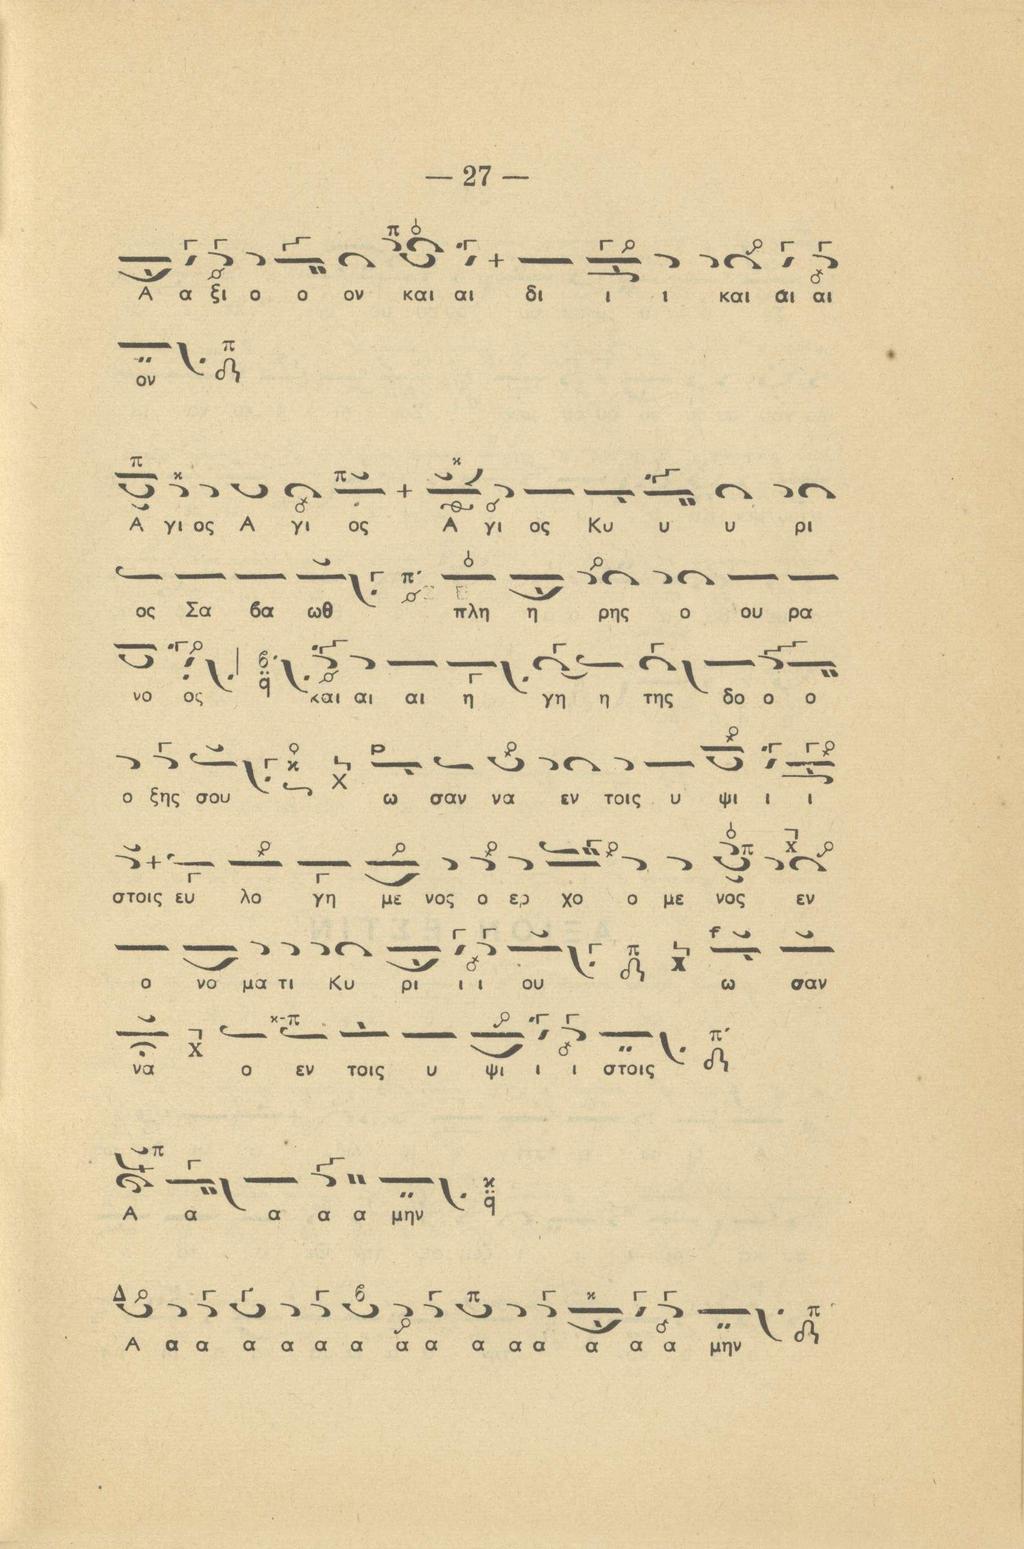 — 27 —
Α α ξι ο ο ον και αι δι ι ι και αι αι
ον
Α γι ος Α γι ος Α γι ος Κυ υ υ ρι
ος Σα βα ωθ πλη η ρης ο ου ρα
νο ος και αι αι η γη η της δο ο ο
ο ξης σου ω σαν να εν τοις υ ψι ι ι
στοις ευ λο γη με νος ο ερ χο ο με νος εν
ο νο μα τι Κυ ρι ι ι ου ω σαν
να ο εν τοις υ ψι ι ι στοις
Α α α α α μην
Α α α α α α α α α α α α α α α μην